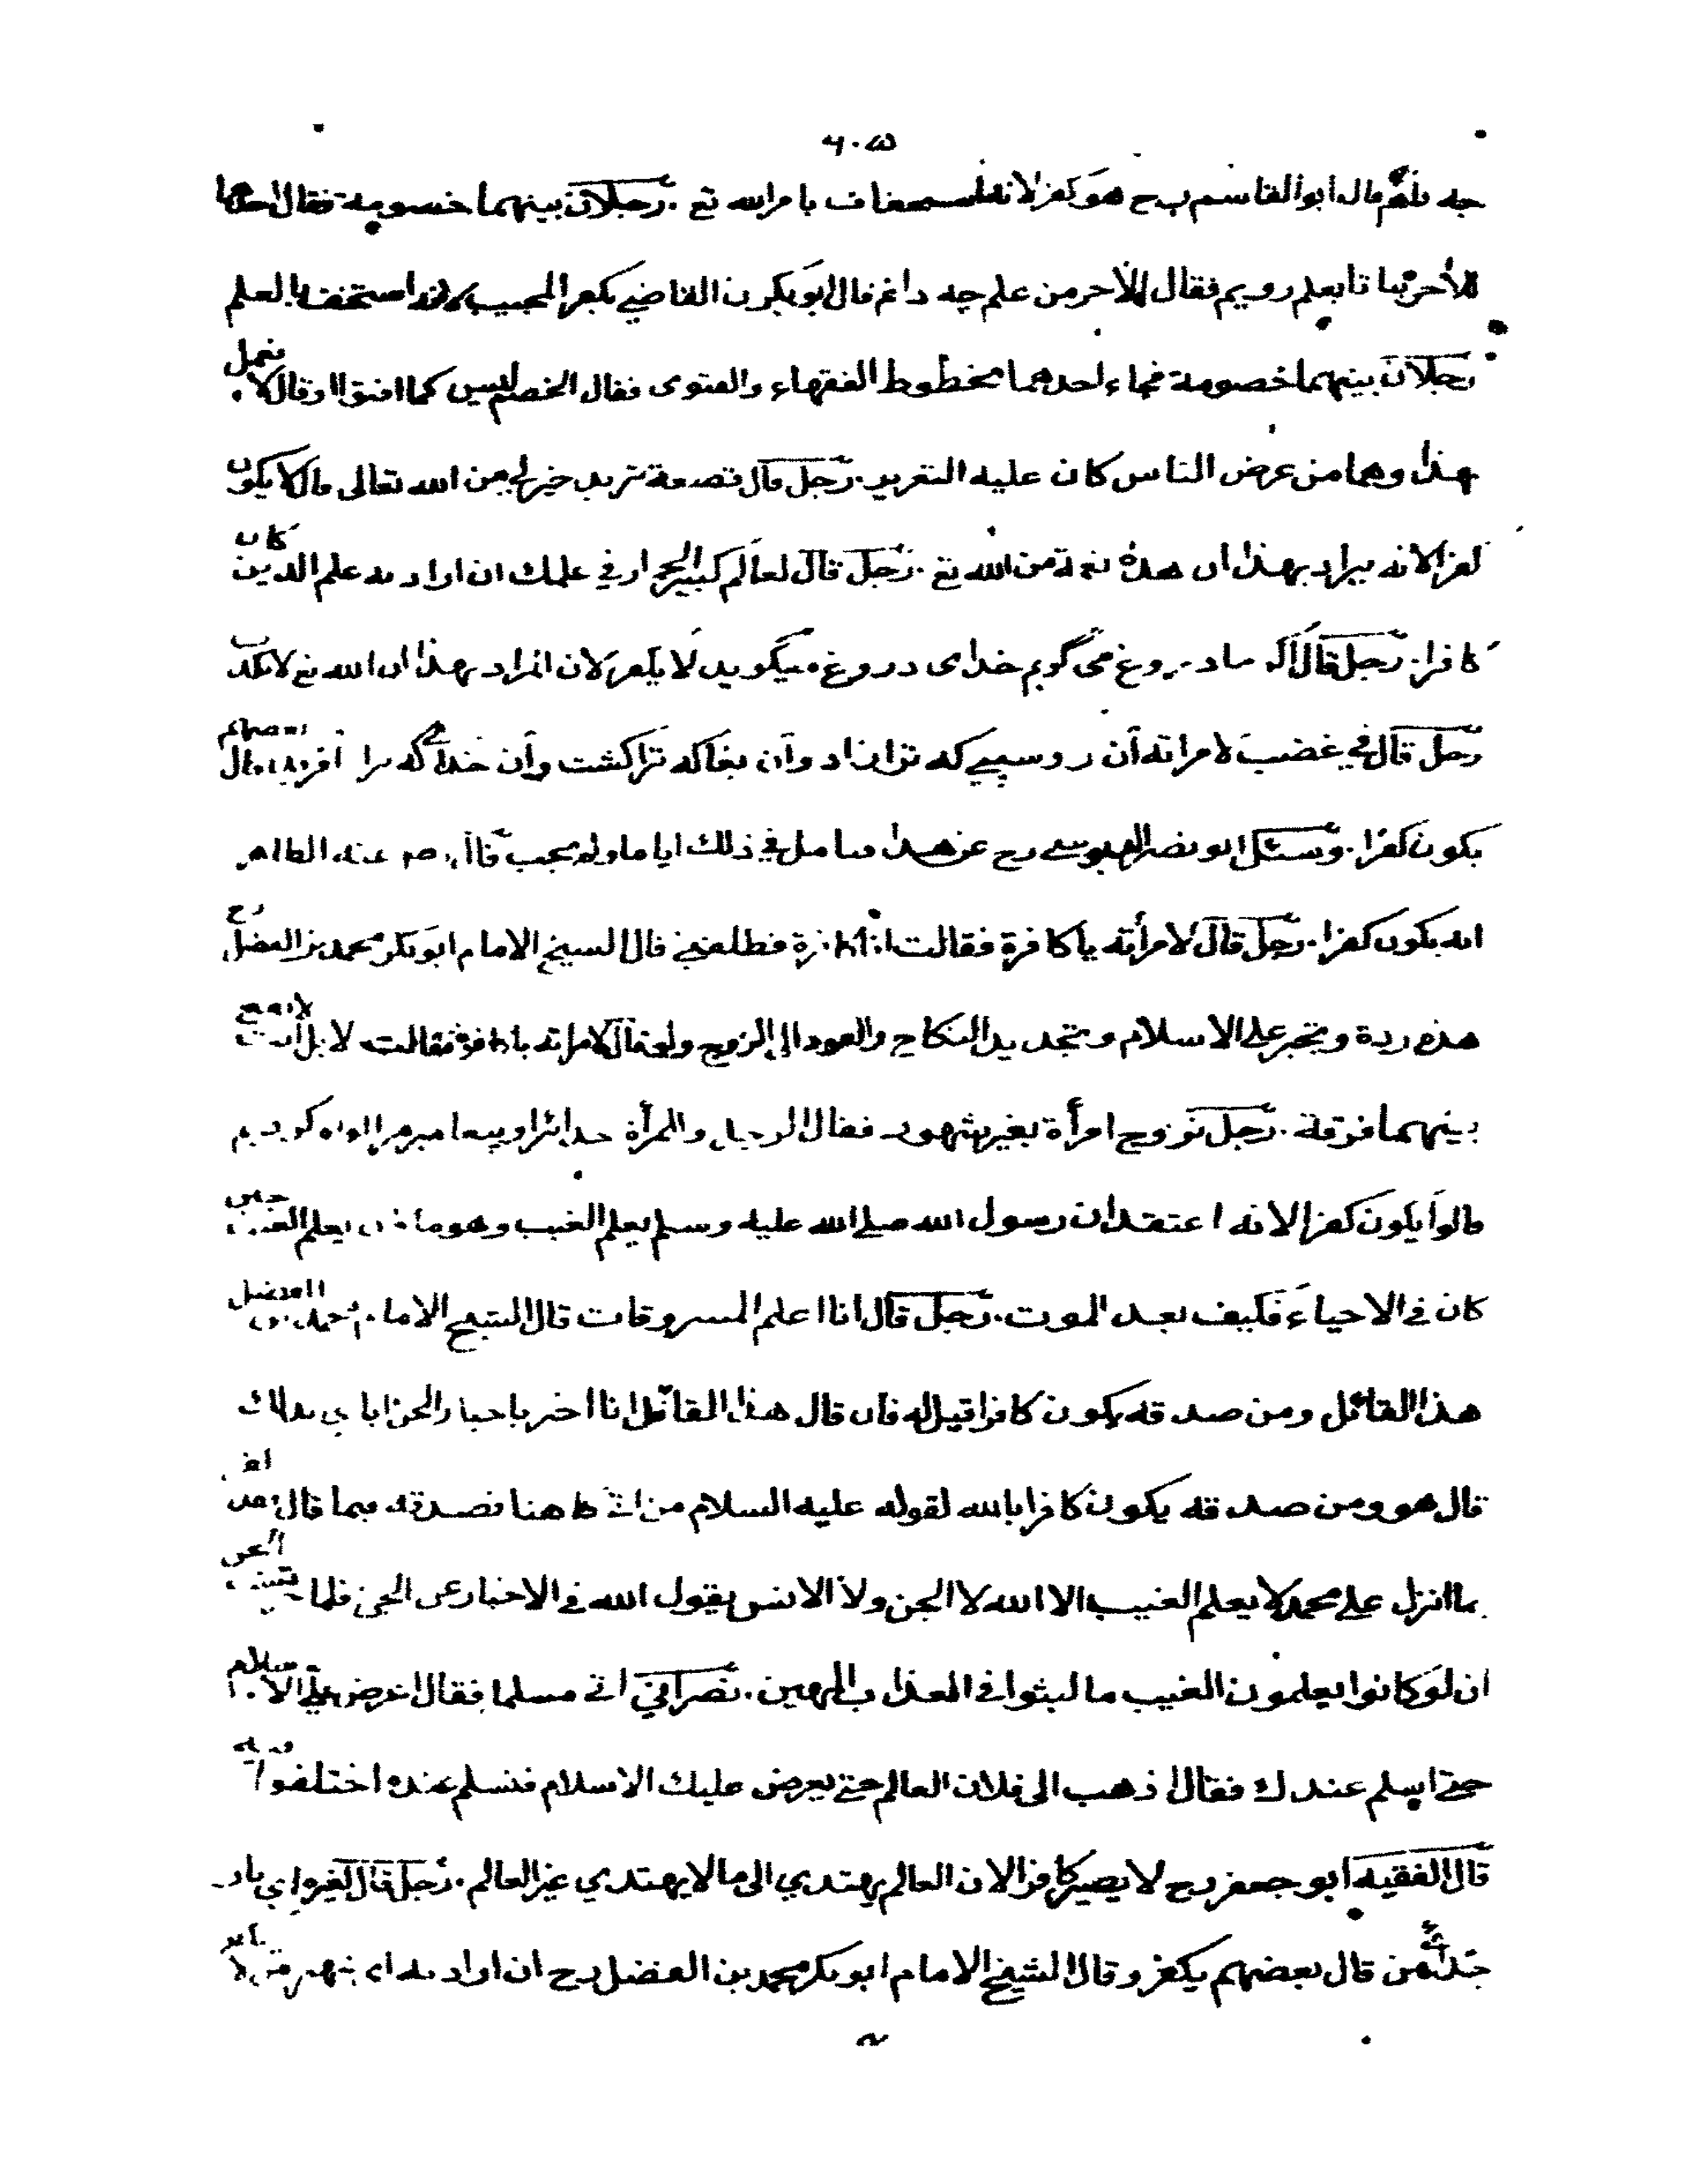 ٦٠٥
چه قال ابوالقاسم رح هو كفر لانه بامرالله تع . رجلان بينهما خصومة فقال احدهما
للأخر بيا تا بعلم رويم فقال الأخر من علم چه دانم قال ابو بكرن القاضي يكفر المجيب لانه استخف بالعلم
رجلان بينهما خصومة فجاء احدهما بخطوط الفقهاء والفتوى فقال الخصم ليس كما افتوا او قال لا نعمل
بهذا وهما من عرض الناس كان عليه التعزير . رجل قال قصعة ثريد خير لي من الله تعالى قال لا يكون
كفرا لانه يراد بهذا ان هذه نعمة من الله تع . رجل قال لعالم كير الحمار في علمك ان اراد به علم الدين كان
كافرا . رجل قال دروغ مى گويم خداى دروغ ميگويد لا يكفر لان المراد بهذا ان الله تع لا يكذب
رجل قال في غضب لامراته آن روسپيى كه ترا زاد وآن كه ترا كشت وآن خداى كه ترا آفريد قال بعضهم
يكون كفرا . وسئل ابو نصر رح عن هذا فتأمل في ذلك اياما ولم يجب قال رضى عنه الظاهر
انه يكون كفرا . رجل قال لامرأته يا كافرة فقالت فطلقني قال الشيخ الامام ابو بكر محمد بن الفضل رح
هذه ردة وتجبر على الاسلام وتجديد النكاح والعود الى الزوج ولو قال لامراته يا كافرة فقالت لا بل انت لا تقع
بينهما فرقة . رجل تزوج امرأة بغير شهود فقال الرجل والمرأة خدا را وپيغامبر را گواه كرديم
قالوا يكون كفرا لانه اعتقد ان رسول الله صلى الله عليه وسلم يعلم الغيب وهو ما كان يعلم الغيب حين
كان في الاحياء فكيف بعد الموت . رجل قال انا اعلم المسروقات قال الشيخ الامام محمد بن الفضل
هذا القائل ومن صدقه يكون كافرا قيل له فان قال هذا القائل انا اخبر باخبار الجن اياي بذلك
قال هو ومن صدقه يكون كافرا بالله لقوله عليه السلام من اتى كاهنا فصدقه فيما قال فقد كفر
بما انزل على محمد لا يعلم الغيب الا الله لا الجن ولا الانس يقول الله في الاخبار عن الجن فلما خر تبينت الجن
ان لو كانوا يعلمون الغيب ما لبثوا في العذاب المهين . نصراني اتى مسلما فقال اعرض علي الاسلام
حتى اسلم عندك فقال اذهب الى فلان العالم حتى يعرض عليك الاسلام فتسلم عنده اختلفوا فيه
قال الفقيه ابو جعفر رح لا يصير كافرا لان العالم يهتدي الى ما لا يهتدي غير العالم . رجل قال لغيره اي بار
خداى من قال بعضهم يكفر وقال الشيخ الامام ابو بكر محمد بن الفضل رح ان اراد به اى